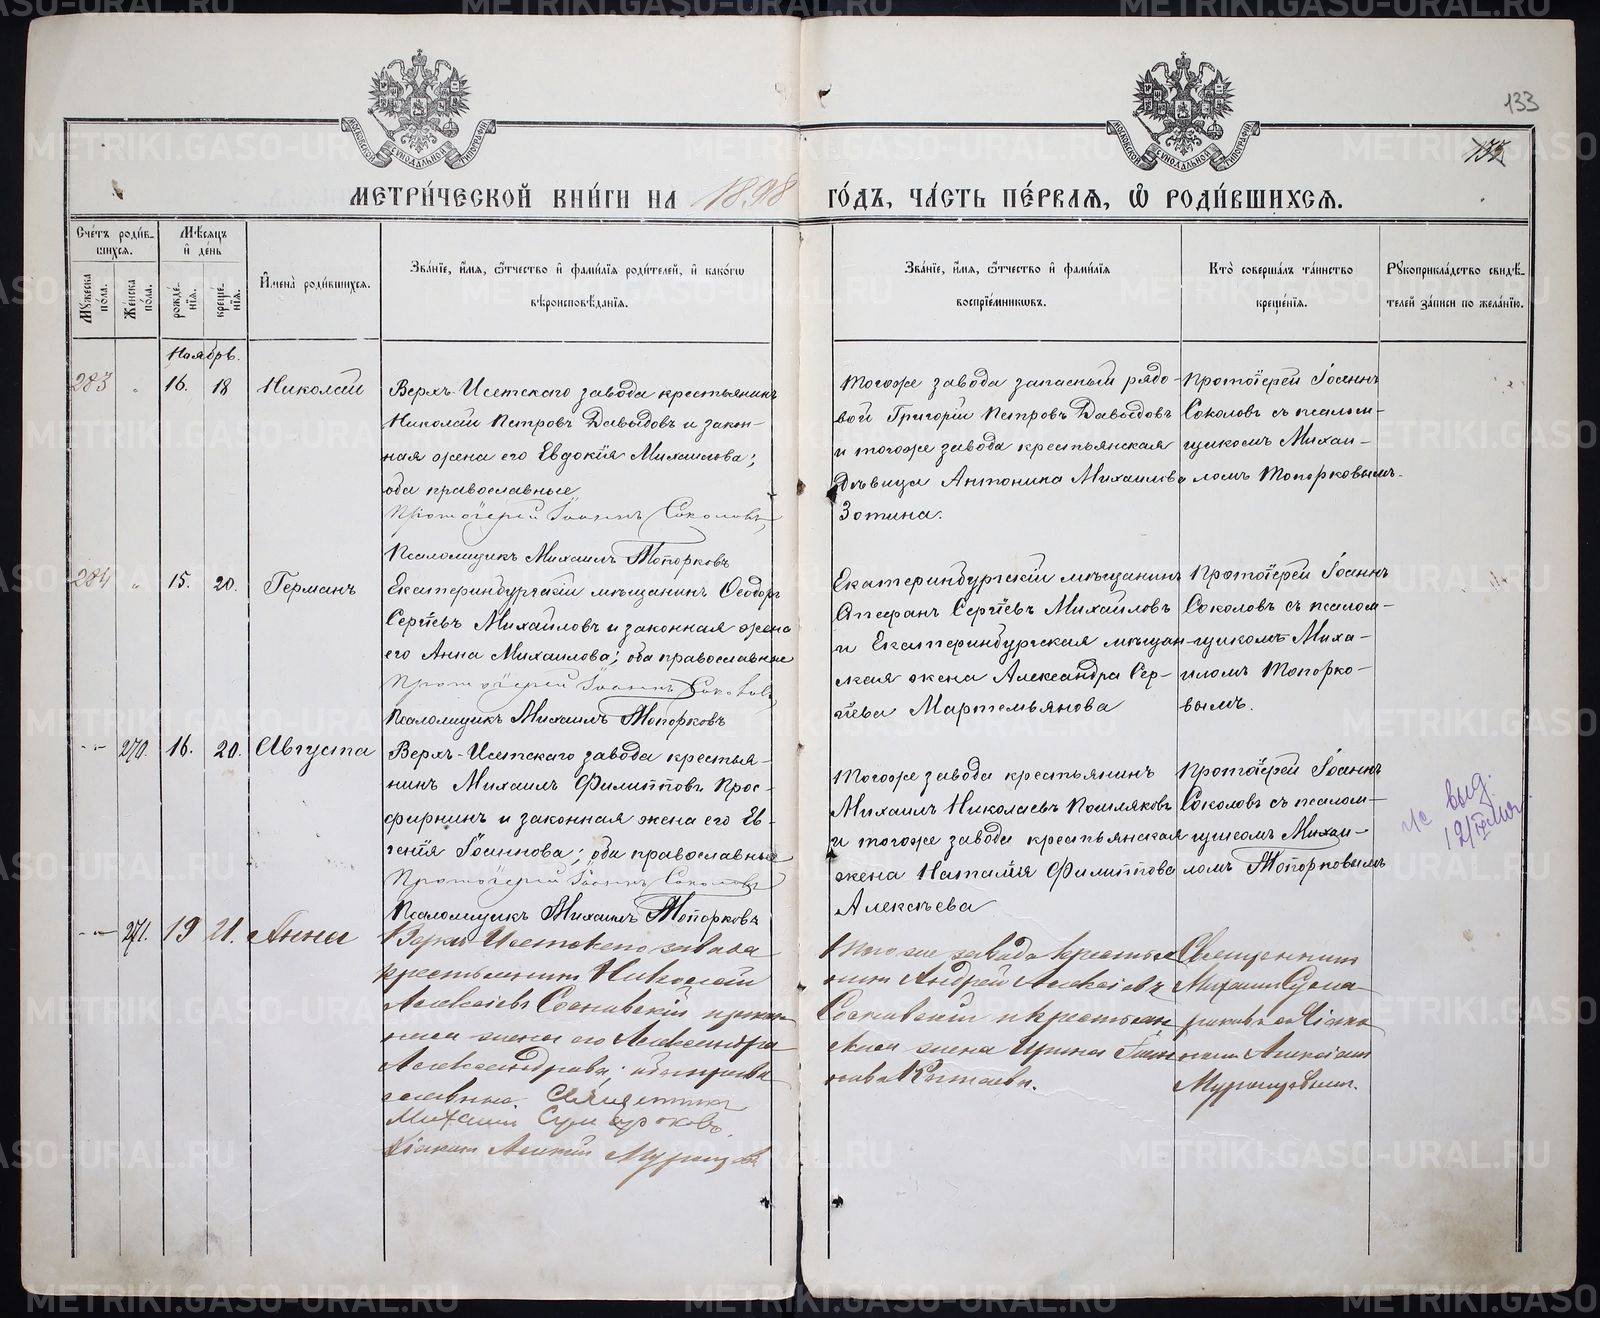 133
МЕТРИ́ЧЕСКОЙ КНИ́ГИ НА 1898 ГО́ДЪ, ЧА́СТЬ ПЕ́РВАѦ, Ѿ РОДИ́ВШИХСѦ.
Сче́тъ роди́вшихсѧ.
Мꙋ́жеска по́ла.
Же́нска по́ла.
Мѣ́сѧцъ и҆ де́нь
рожде́нїѧ.
креще́нїѧ.
И҆мена̀ роди́вшихсѧ.
Зва́нїе, и҆́мѧ, ѻ҆́тчество и҆ фами́лїѧ роди́телей, и҆ како́гѡ
вѣроисповѣ́данїѧ.
Зва́нїе, и҆́мѧ, ѻ҆́тчество и҆ фами́лїѧ
воспрїе́мникѡвъ.
Кто̀ соверша́лъ та́инство
креще́нїѧ.
Рꙋкоприкла́дство свидѣ́-
телей за́писи по жела́нїю.
Ноябрь.
283 " 16. 18 Николай
Верхъ-Исетскаго завода крестьянинъ
Николай Петровъ Давыдовъ и закон-
ная жена его Евдокія Михаилова;
оба православные
Протоіерей Іоаннъ Соколовъ
Псаломщикъ Михаилъ Топорковъ
Тогоже завода запасный рядо-
вой Григорій Петровъ Давыдовъ
и тогоже завода крестьянская
дѣвица Антонина Михаилова
Зотина.
Протоіерей Іоаннъ
Соколовъ съ псалом-
щикомъ Михаи-
ломъ Топорковымъ.
284 " 15. 20. Германъ
Екатеринбургскій мѣщанинъ Ѳеодоръ
Сергіевъ Михайловъ и законная жена
его Анна Михаилова; оба православные
Протоіерей Іоаннъ Соколовъ
Псаломщикъ Михаилъ Топорковъ
Екатеринбургскій мѣщанинъ
Стефанъ Сергіевъ Михайловъ
и Екатеринбургская мѣщан-
ская жена Александра Сер-
гіева Мартемьянова
Протоіерей Іоаннъ
Соколовъ съ псалом-
щикомъ Миха-
иломъ Топорко-
вымъ.
270. 16. 20. Августа
Верхъ-Исетскаго завода крестья-
нинъ Михаилъ Филипповъ Прос-
фирнинъ и законная жена его Ев-
генія Іоаннова; оба православные
Протоіерей Іоаннъ Соколовъ
Псаломщикъ Михаилъ Топорковъ
Тогоже завода крестьянинъ
Михаилъ Николаевъ Пошляковъ
и тогоже завода крестьянская
жена Наталія Филиппова
Алексѣева
Протоіерей Іоаннъ
Соколовъ съ псалом-
щикомъ Михаи-
ломъ Топорковымъ
выд.
271. 19 21. Анна
Верхъ Исетскаго завода
крестьянинъ Николай
Алексіевъ Сосновскій и закон
ная жена его Александра
Александрова; оба право
славные Священникъ
Михаилъ Сумароковъ.
Діаконъ Алексій Мурашовъ
Того же завода крестья
нинъ Андрей Алексіевъ
Сосновскій и крестьян
ская жена Ирина Іоан
нова Китаева.
Священникъ
Михаилъ Сума
роковъ съ Діако
номъ Алексіемъ
Мурашовымъ.
METRIKI.GASO-URAL.RU